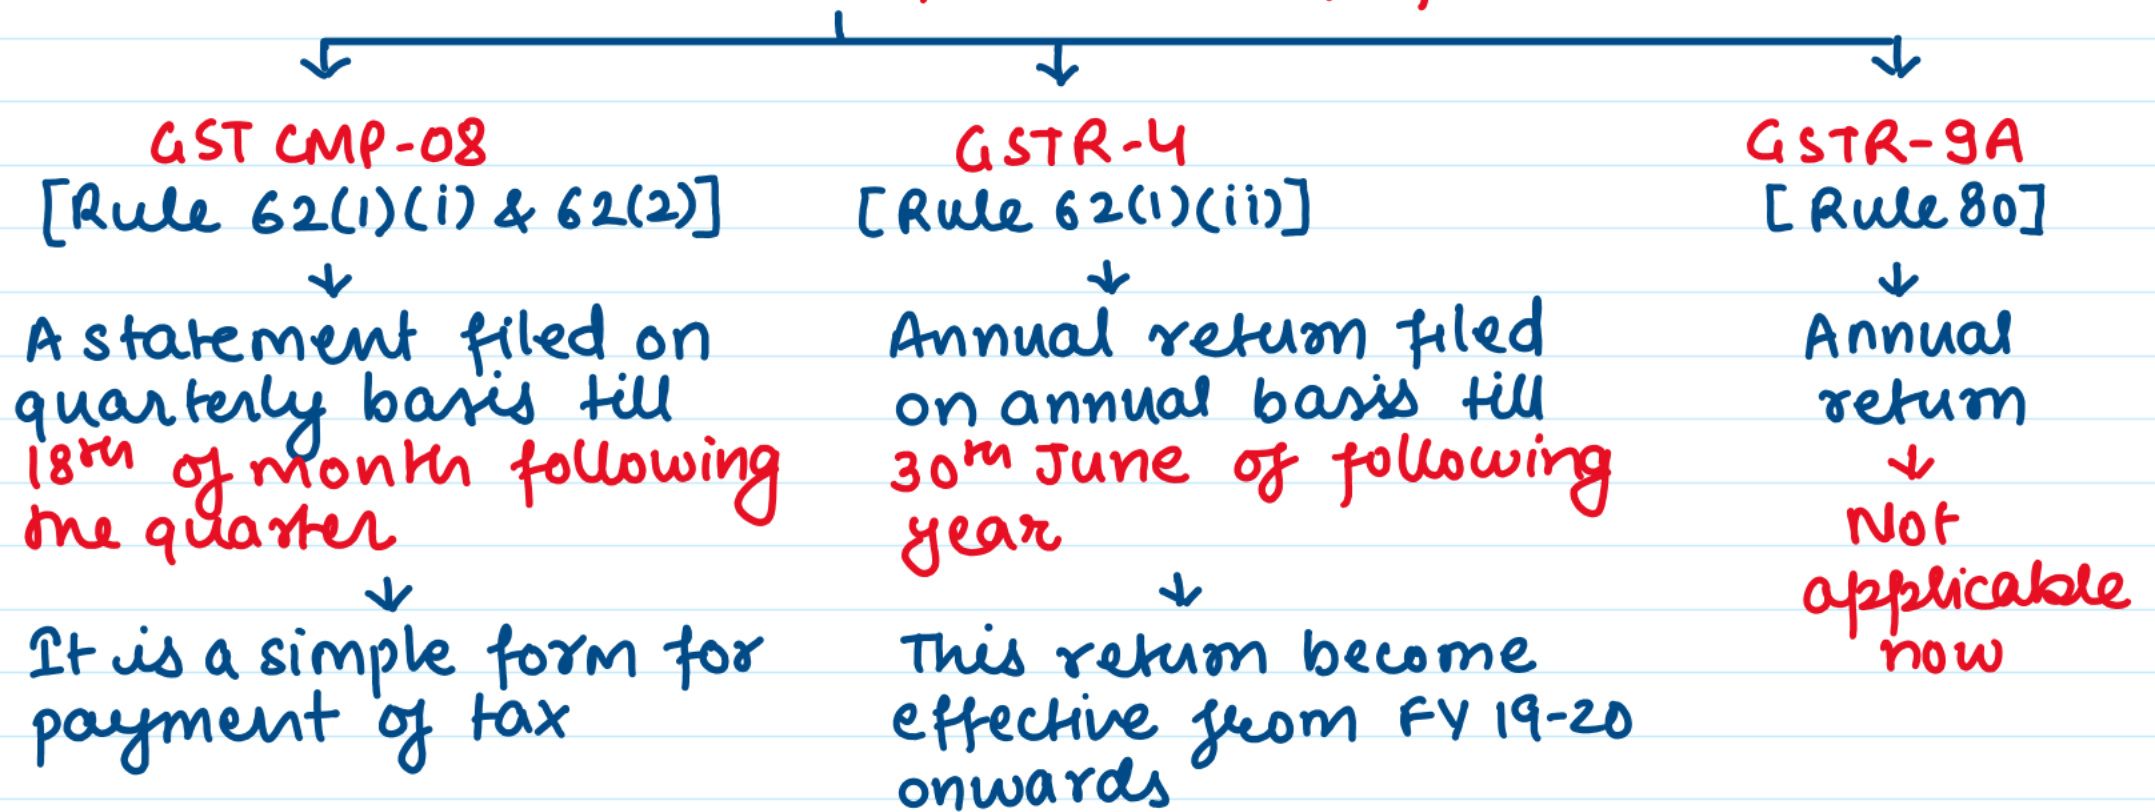 GST CMP-08
[Rule 62(1)(i) & 62(2)]
A statement filed on
quarterly basis till
18th of month following
the quarter
It is a simple form for
payment of tax
GSTR-4
[Rule 62(1)(ii)]
Annual return filed
on annual basis till
30th June of following
year
This return become
effective from FY 19-20
onwards
GSTR-9A
[Rule 80]
Annual
return
Not
applicable
now